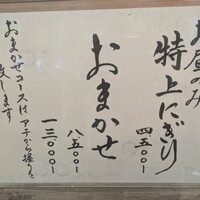 お昼のみ
特上にぎり
四五〇〇-
おまかせ
八五〇〇-
一三〇〇〇-
おまかせコースはアテから握りを
致します